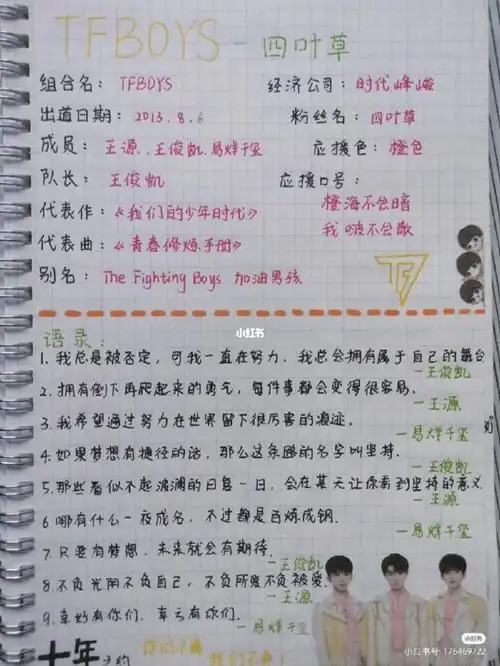 TFBOYS - 四叶草
组合名：TFBOYS 经济公司：时代峰峻
出道日期：2013.8.6 粉丝名：四叶草
成员：王源、王俊凯、易烊千玺 应援色：橙色
队长：王俊凯 应援口号：
代表作：《我们的少年时代》 橙海不会暗
代表曲：《青春修炼手册》 我们不会散
别名：The Fighting Boys 加油男孩
TF
语录：
小红书
1. 我总是被否定，可我一直在努力，我总会拥有属于自己的舞台
—王俊凯
2. 拥有倒下再爬起来的勇气，每件事都会变得很容易.
—王源
3. 我希望通过努力在世界留下很厉害的痕迹，
—易烊千玺
4. 如果梦想有捷径的话，那么这条路的名字叫坚持.
—王俊凯
5. 那些看似不起波澜的日复一日，会在某天让你看到坚持的意义
—王源
6. 哪有什么一夜成名，不过都是百炼成钢.
—易烊千玺
7. 只要有梦想，未来就会有期待.
—王俊凯
8. 不负光阴不负自己，不负所爱不负被爱
—王源
9. 幸好有你们，幸云有你们.
—易烊千玺
十年之约
你们不离
我们不弃
小红书
小红书号：176469722